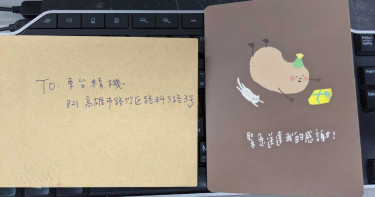 TO: 東台精機
821 高雄市路竹區路科3路3号
緊急送達我的感謝!